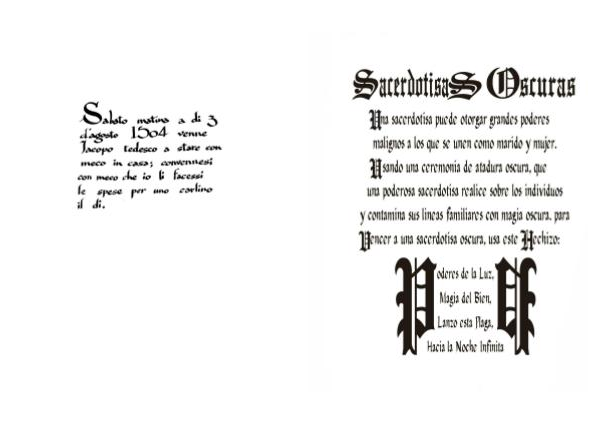 Sabato matina a di 3
d'agosto 1504 venne
Jacopo tedesco a stare con
meco in casa; convennesi
con meco che io li facessi
le spese per uno carlino
il di.
SacerdotisaS Oscuras
Una sacerdotisa puede otorgar grandes poderes
malignos a los que se unen como marido y mujer.
Usando una ceremonia de atadura oscura, que
una poderosa sacerdotisa realice sobre los individuos
y contamina sus lineas familiares con magia oscura, para
Vencer a una sacerdotisa oscura, usa este Hechizo:
Poderes de la Luz,
Magia del Bien,
Lanzo esta Plaga,
Hacia la Noche Infinita